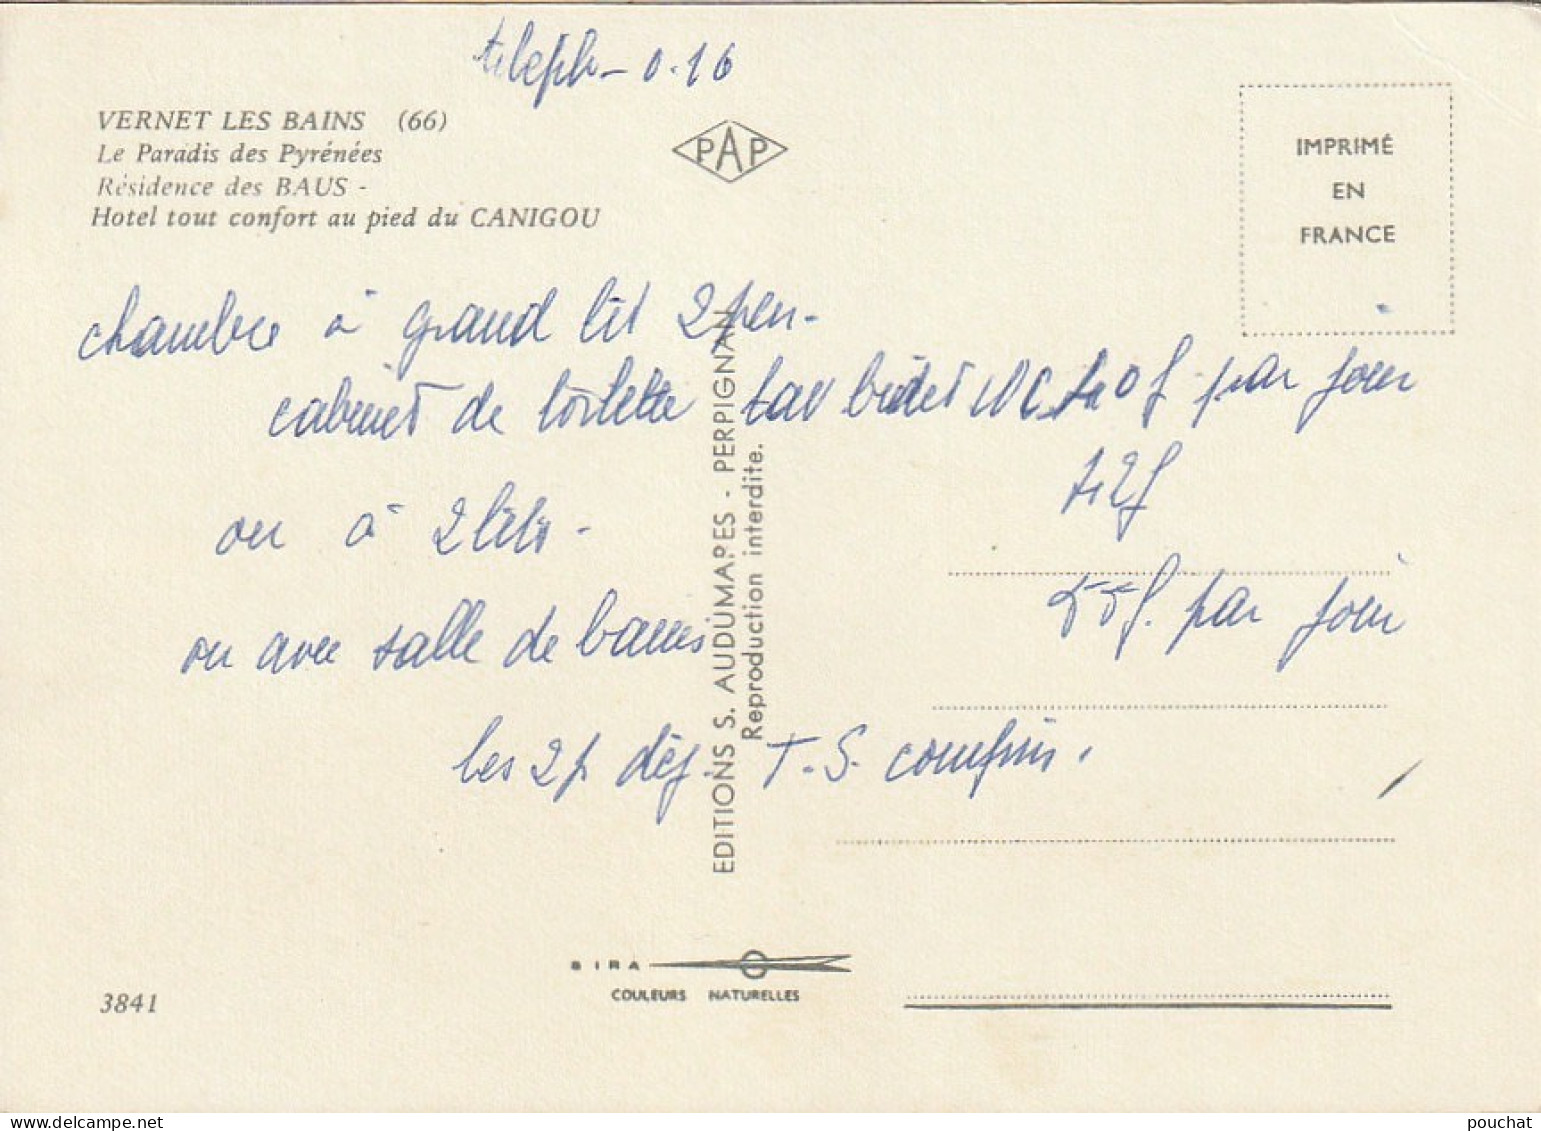 téleph - 0.16
VERNET LES BAINS (66)
Le Paradis des Pyrénées
Résidence des BAUS -
Hotel tout confort au pied du CANIGOU
PAP
IMPRIMÉ
EN
FRANCE
chambre à grand lit 2 per.
cabinet de toilette lav bidet WC 40 f par jour
ou à 2 lits - 42 f
ou avec salle de bains 55 f. par jour
les 2 p. déj. T.S. compris.
EDITIONS S. AUDUMARES - PERPIGNAN
Reproduction interdite.
SIRA
COULEURS NATURELLES
3841
pouchat